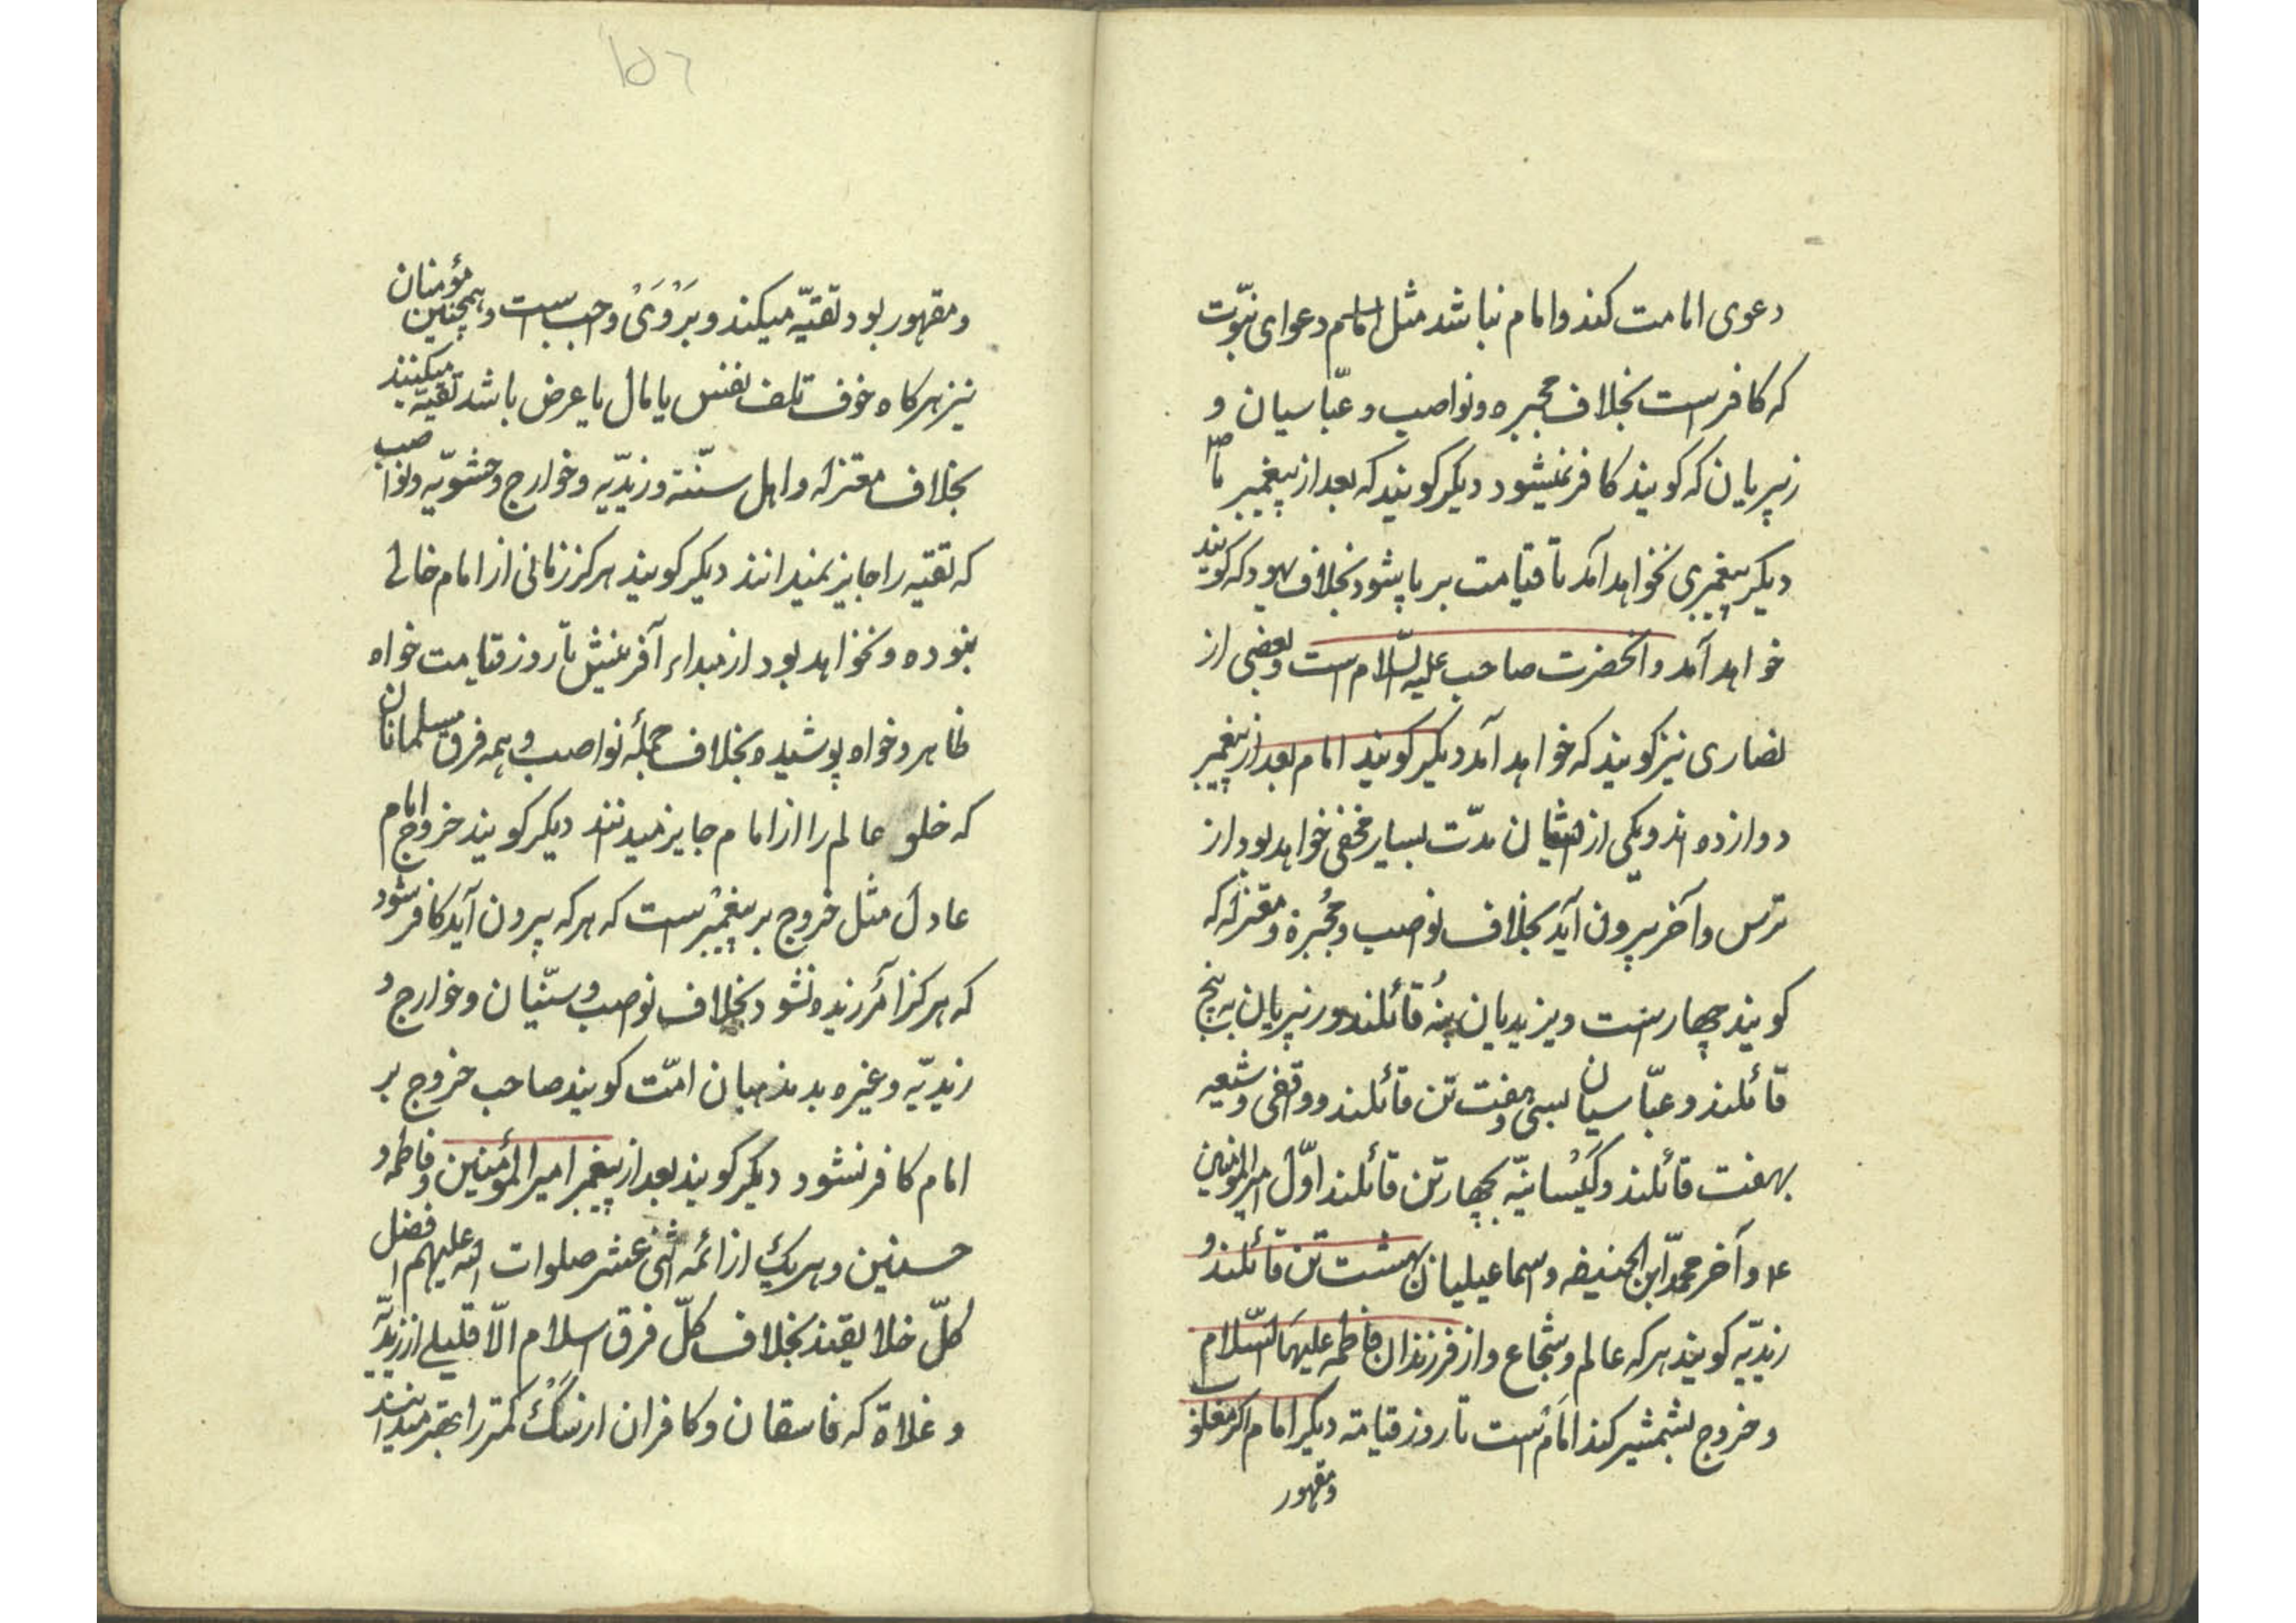 دعوی امامت کند و امام نباشد مثل دعوای نبوّت
که کافرست بخلاف مجبره و نواصب و عبّاسیان و
زبیریان که کویند کافر نمیشود دیکر کویند که بعد از پیغمبر ما ص
دیکر پیغمبری نخواهد آمد تا قیامت برپا شود بخلاف یهود که کویند
خواهد آمد و آنحضرت صاحب علیه السّلام است و بعضی از
نصاری نیز کویند که خواهد آمد دیکر کویند امام بعد از پیغمبر
دوازده اند و یکی از ایشان مدّت بسیار مخفی خواهد بود از
ترس و آخر بیرون آید بخلاف نواصب و مُجبرة و معتزله که
کویند چهارست و یزیدیان بنُه قائلند و زبیریان به پنج
قائلند و عبّاسیان بسی و هفت تن قائلند و واقفی و شیعیه
بهفت قائلند و کَیْسانیّه بچهار تن قائلند اوّل امیرالمؤمنین
ع و آخر محمّد ابن الحنیفه و اسماعیلیان بهشت تن قائلند و
زیدیّه کویند هر که عالم و شجاع و از فرزندان فاطمه علیهَا السّلام
و خروج بشمشیر کند امامَست تا روز قیامة دیکر امام اکر مغلوب
ومقهور
۱۵۶
و مقهور بود تقیّه میکند و بَرْوَیْ واجب است و همچنین مؤمنان
نیز هرکاه خوف تلف نفس یا مال یا عرض باشد تقیّه میکنند
بخلاف معتزله و اهل سنّة و زیدّیه و خوارج و حشویّه و نواصب
که تقیّه را جایز نمیدانند دیکر کویند هرکز زمانی از امام خالی
نبوده و نخواهد بود از مبداء آفرینش تا روز قیامت خواه
ظاهر و خواه پوشیده بخلاف جملهٔ نواصب و همه فرق مسلمانان
که خلو عالم را از امام جایز میدنند دیکر کویند خروج بر امام
عادل مثل خروج بر پیغمبرست که هر که بیرون آید کافر شود
که هرکز آمرزیده نشود بخلاف نواصب و سنّیان و خوارج و
زیدیّه و غیره بدمذهبان امّت کویند صاحب خروج بر
امام کافر نشود دیکر کویند بعد از پیغمبر امیرالمؤمنین و فاطمه و
حسنین و هریک از ائمّه اثنی عشر صلوات الله علیهم افضل
کلّ خلایقند بخلاف کلّ فرق اسلام الّا قلیلی از زیدیّه
و غلاة که فاسقان و کافران از سَکْ کمتر را بهتر میدانند